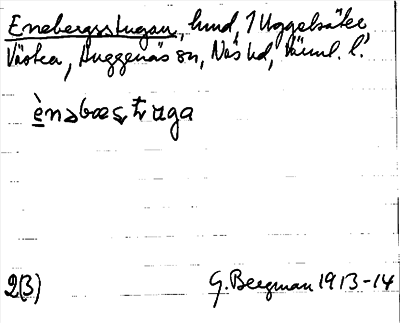 Enebergsstugan, hmd, 1 Uggelsäter
Västra, Huggenäs sn, Näs hd, Värml. l.
ènəbæʂt̢ɯga
2(3) G. Bergman 1913-14